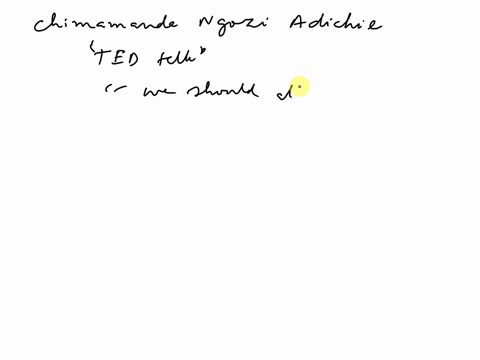 Chimamande Ngozi Adichie
"TED talk"
"we should